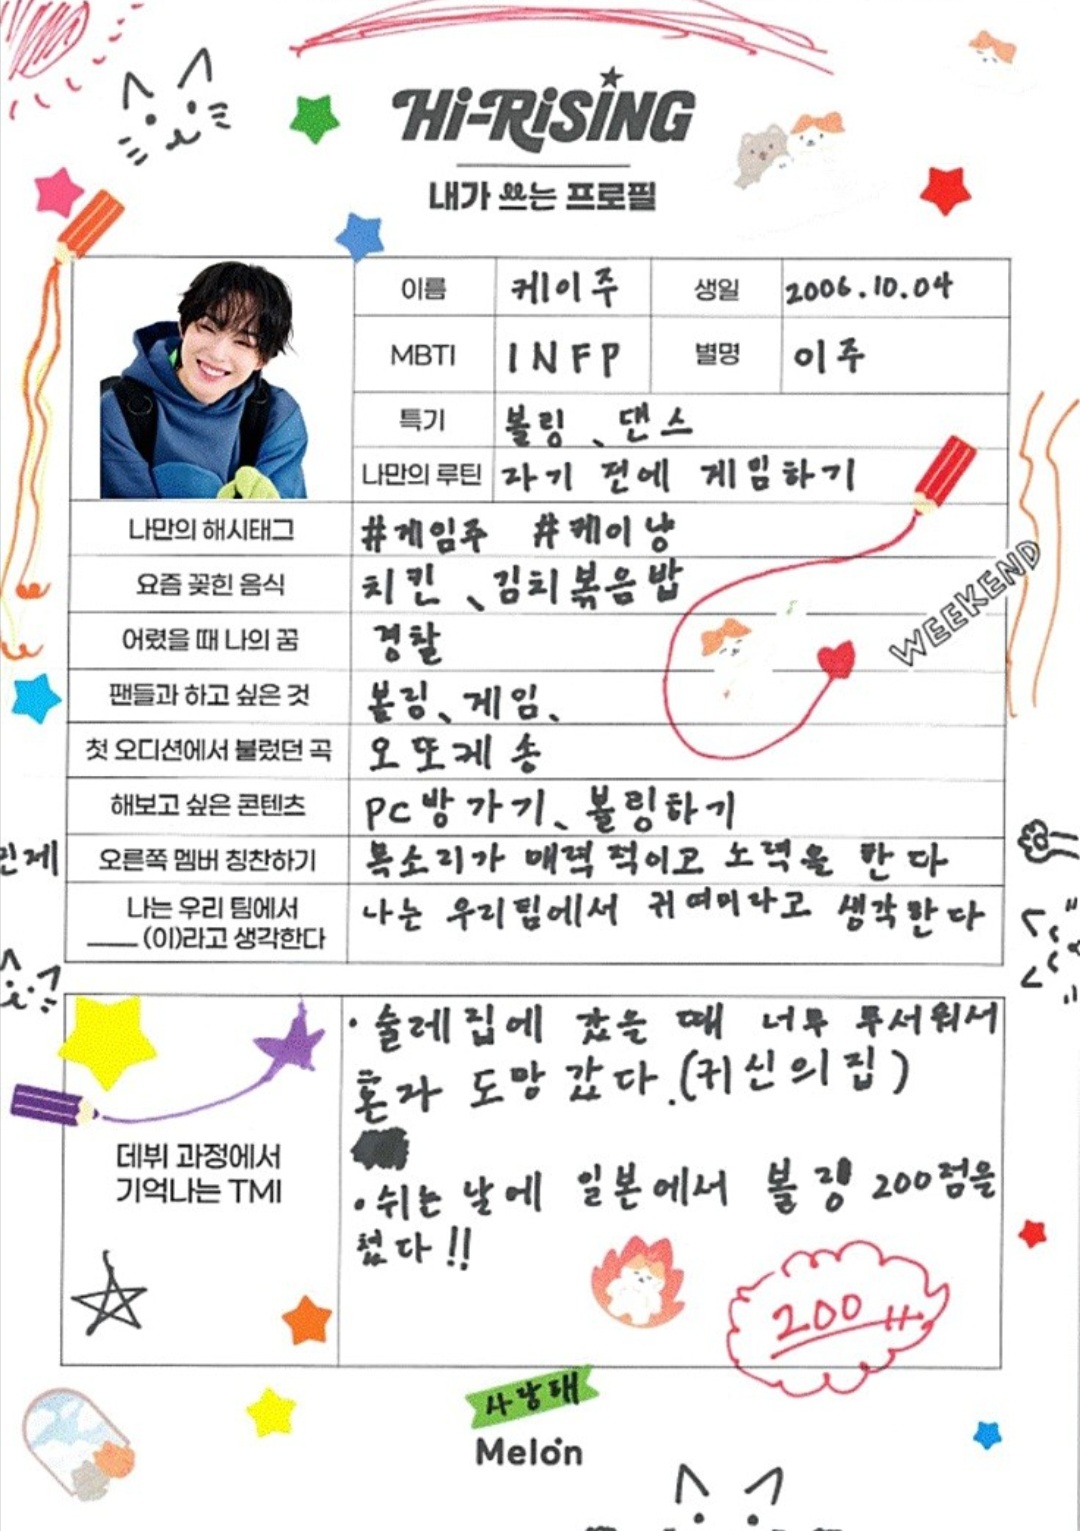 Hi-RiSiNG
내가 쓰는 프로필
이름 케이주 생일 2006.10.04
MBTI INFP 별명 이주
특기 볼링、댄스
나만의 루틴 자기 전에 게임하기
나만의 해시태그 #게임주 #케이냥
요즘 꽂힌 음식 치킨、김치볶음밥
어렸을 때 나의 꿈 경찰
WEEKEND
팬들과 하고 싶은 것 볼링、게임、
첫 오디션에서 불렀던 곡 오또케 송
해보고 싶은 콘텐츠 PC방가기、볼링하기
민제 오른쪽 멤버 칭찬하기 목소리가 매력적이고 노력을 한다
나는 우리 팀에서 나는 우리팀에서 귀여미라고 생각한다
____ (이)라고 생각한다
데뷔 과정에서
기억나는 TMI
· 술레집에 갔을 때 너무 무서워서
혼자 도망갔다.(귀신의집)
· 쉬는 날에 일본에서 볼링 200점을
쳤다!!
200!!
사랑해
Melon